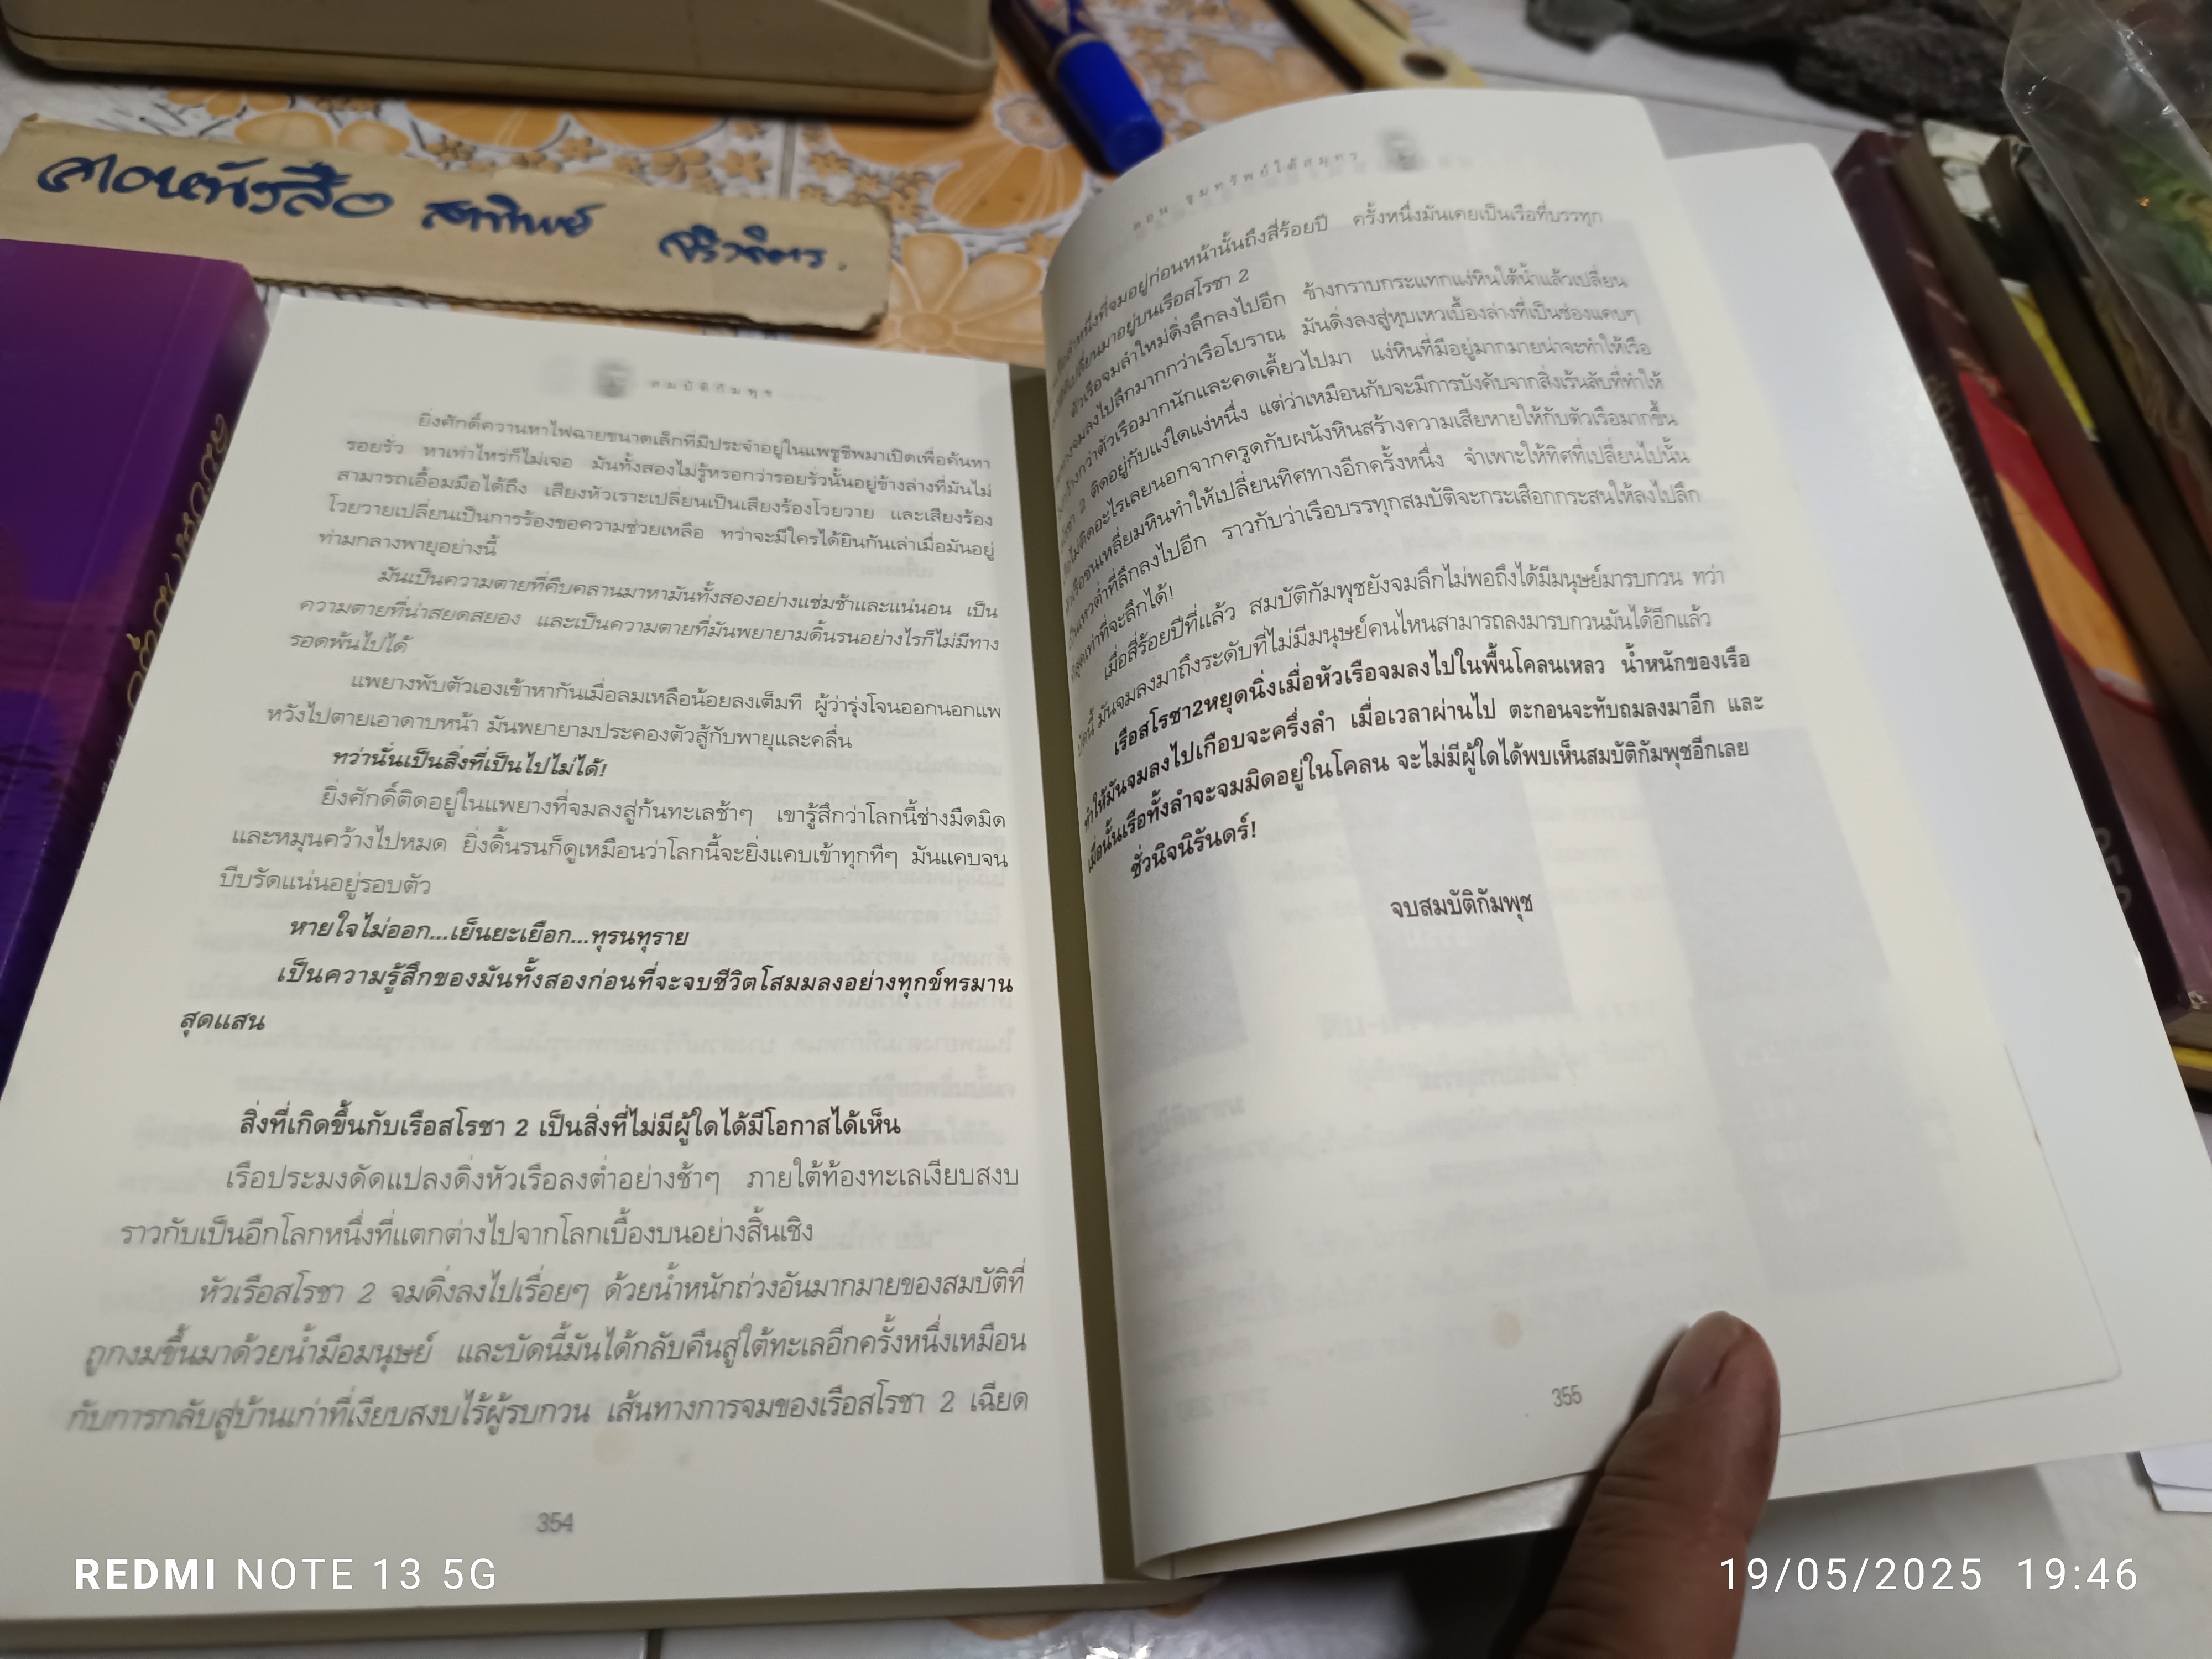 สมบัติกัมพุช
ยิ่งศักดิ์ควานหาไฟฉายขนาดเล็กที่มีประจำอยู่ในแพชูชีพมาเปิดเพื่อค้นหา
รอยรั่ว หาเท่าไหร่ก็ไม่เจอ มันทั้งสองไม่รู้หรอกว่ารอยรั่วนั้นอยู่ข้างล่างที่มันไม่
สามารถเอื้อมมือได้ถึง เสียงหัวเราะเปลี่ยนเป็นเสียงร้องโวยวาย และเสียงร้อง
โวยวายเปลี่ยนเป็นการร้องขอความช่วยเหลือ ทว่าจะมีใครได้ยินกันเล่าเมื่อมันอยู่
ท่ามกลางพายุอย่างนี้
มันเป็นความตายที่คืบคลานมาหามันทั้งสองอย่างแช่มช้าและแน่นอน เป็น
ความตายที่น่าสยดสยอง และเป็นความตายที่มันพยายามดิ้นรนอย่างไรก็ไม่มีทาง
รอดพ้นไปได้
แพยางพับตัวเองเข้าหากันเมื่อลมเหลือน้อยลงเต็มที ผู้ว่ารุ่งโจนออกนอกแพ
หวังไปตายเอาดาบหน้า มันพยายามประคองตัวสู้กับพายุและคลื่น
ทว่านั่นเป็นสิ่งที่เป็นไปไม่ได้!
ยิ่งศักดิ์ติดอยู่ในแพยางที่จมลงสู่ก้นทะเลช้าๆ เขารู้สึกว่าโลกนี้ช่างมืดมิด
และหมุนคว้างไปหมด ยิ่งดิ้นรนก็ดูเหมือนว่าโลกนี้จะยิ่งแคบเข้าทุกทีๆ มันแคบจน
บีบรัดแน่นอยู่รอบตัว
หายใจไม่ออก...เย็นยะเยือก...ทุรนทุราย
เป็นความรู้สึกของมันทั้งสองก่อนที่จะจบชีวิตโสมมลงอย่างทุกข์ทรมาน
สุดแสน
สิ่งที่เกิดขึ้นกับเรือสโรชา 2 เป็นสิ่งที่ไม่มีผู้ใดได้มีโอกาสได้เห็น
เรือประมงดัดแปลงดิ่งหัวเรือลงต่ำอย่างช้าๆ ภายใต้ท้องทะเลเงียบสงบ
ราวกับเป็นอีกโลกหนึ่งที่แตกต่างไปจากโลกเบื้องบนอย่างสิ้นเชิง
หัวเรือสโรชา 2 จมดิ่งลงไปเรื่อยๆ ด้วยน้ำหนักถ่วงอันมากมายของสมบัติที่
ถูกงมขึ้นมาด้วยน้ำมือมนุษย์ และบัดนี้มันได้กลับคืนสู่ใต้ทะเลอีกครั้งหนึ่งเหมือน
กับการกลับสู่บ้านเก่าที่เงียบสงบไร้ผู้รบกวน เส้นทางการจมของเรือสโรชา 2 เฉียด
354
ตอน ขุมทรัพย์ใต้สมุทร
ที่จมอยู่ก่อนหน้านั้นถึงสี่ร้อยปี ครั้งหนึ่งมันเคยเป็นเรือที่บรรทุก
มาอยู่บนเรือสโรชา 2
ตัวเรือจมลำใหม่ดิ่งลึกลงไปอีก ข้างกราบกระแทกแง่หินใต้น้ำแล้วเปลี่ยน
จมลงไปลึกมากกว่าเรือโบราณ มันดิ่งลงสู่หุบเหวเบื้องล่างที่เป็นช่องแคบๆ
กว่าตัวเรือมากนักและคดเคี้ยวไปมา แง่หินที่มีอยู่มากมายน่าจะทำให้เรือ
2 ติดอยู่กับแง่ใดแง่หนึ่ง แต่ว่าเหมือนกับจะมีการบังคับจากสิ่งเร้นลับที่ทำให้
ไม่ติดอะไรเลยนอกจากครูดกับผนังหินสร้างความเสียหายให้กับตัวเรือมากขึ้น
เรือชนเหลี่ยมหินทำให้เปลี่ยนทิศทางอีกครั้งหนึ่ง จำเพาะให้ทิศที่เปลี่ยนไปนั้น
เหวต่ำที่ลึกลงไปอีก ราวกับว่าเรือบรรทุกสมบัติจะกระเสือกกระสนให้ลงไปลึก
เท่าที่จะลึกได้!
เมื่อสี่ร้อยปีที่แล้ว สมบัติกัมพุชยังจมลึกไม่พอถึงได้มีมนุษย์มารบกวน ทว่า
บัดนี้ มันจมลงมาถึงระดับที่ไม่มีมนุษย์คนไหนสามารถลงมารบกวนมันได้อีกแล้ว
เรือสโรชา2หยุดนิ่งเมื่อหัวเรือจมลงไปในพื้นโคลนเหลว น้ำหนักของเรือ
ทำให้มันจมลงไปเกือบจะครึ่งลำ เมื่อเวลาผ่านไป ตะกอนจะทับถมลงมาอีก และ
เมื่อนั้นเรือทั้งลำจะจมมิดอยู่ในโคลน จะไม่มีผู้ใดได้พบเห็นสมบัติกัมพุชอีกเลย
ชั่วนิจนิรันดร์!
จบสมบัติกัมพุช
355
REDMI NOTE 13 5G
19/05/2025 19:46